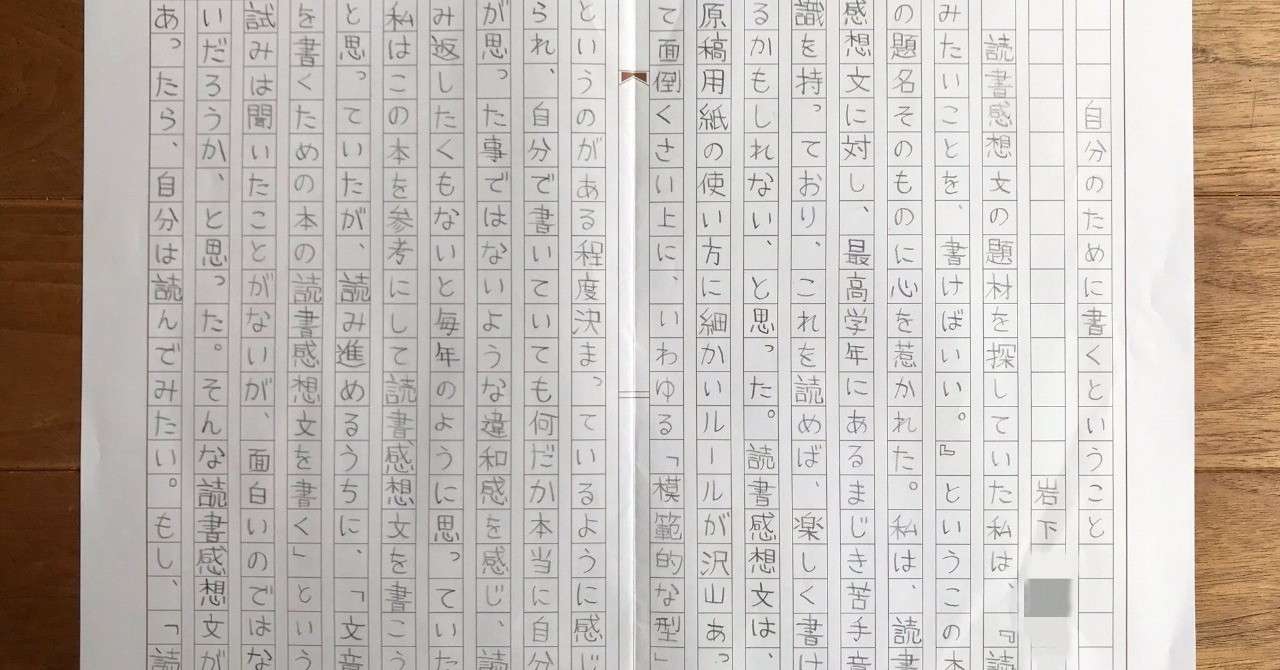 自分のために書くということ
岩下
読書感想文の題材を探していた私は、『読
みたいことを、書けばいい。』というこの本
の題名そのものに心を惹かれた。私は、読書
感想文に対し、最高学年にあるまじき苦手意
識を持っており、これを読めば、楽しく書け
るかもしれない、と思った。読書感想文は、
原稿用紙の使い方に細かいルールが沢山あっ
て面倒くさい上に、いわゆる「模範的な型」
というのがある程度決まっているように感じ
られ、自分で書いていても何だか本当に自分
が思った事ではないような違和感を感じ、読
み返したくもないと毎年のように思っていた
私はこの本を参考にして読書感想文を書こう
と思っていたが、読み進めるうちに、「文章
を書くための本の読書感想文を書く」という
試みは聞いたことがないが、面白いのではな
いだろうか、と思った。そんな読書感想文が
あったら、自分は読んでみたい。もし、「読